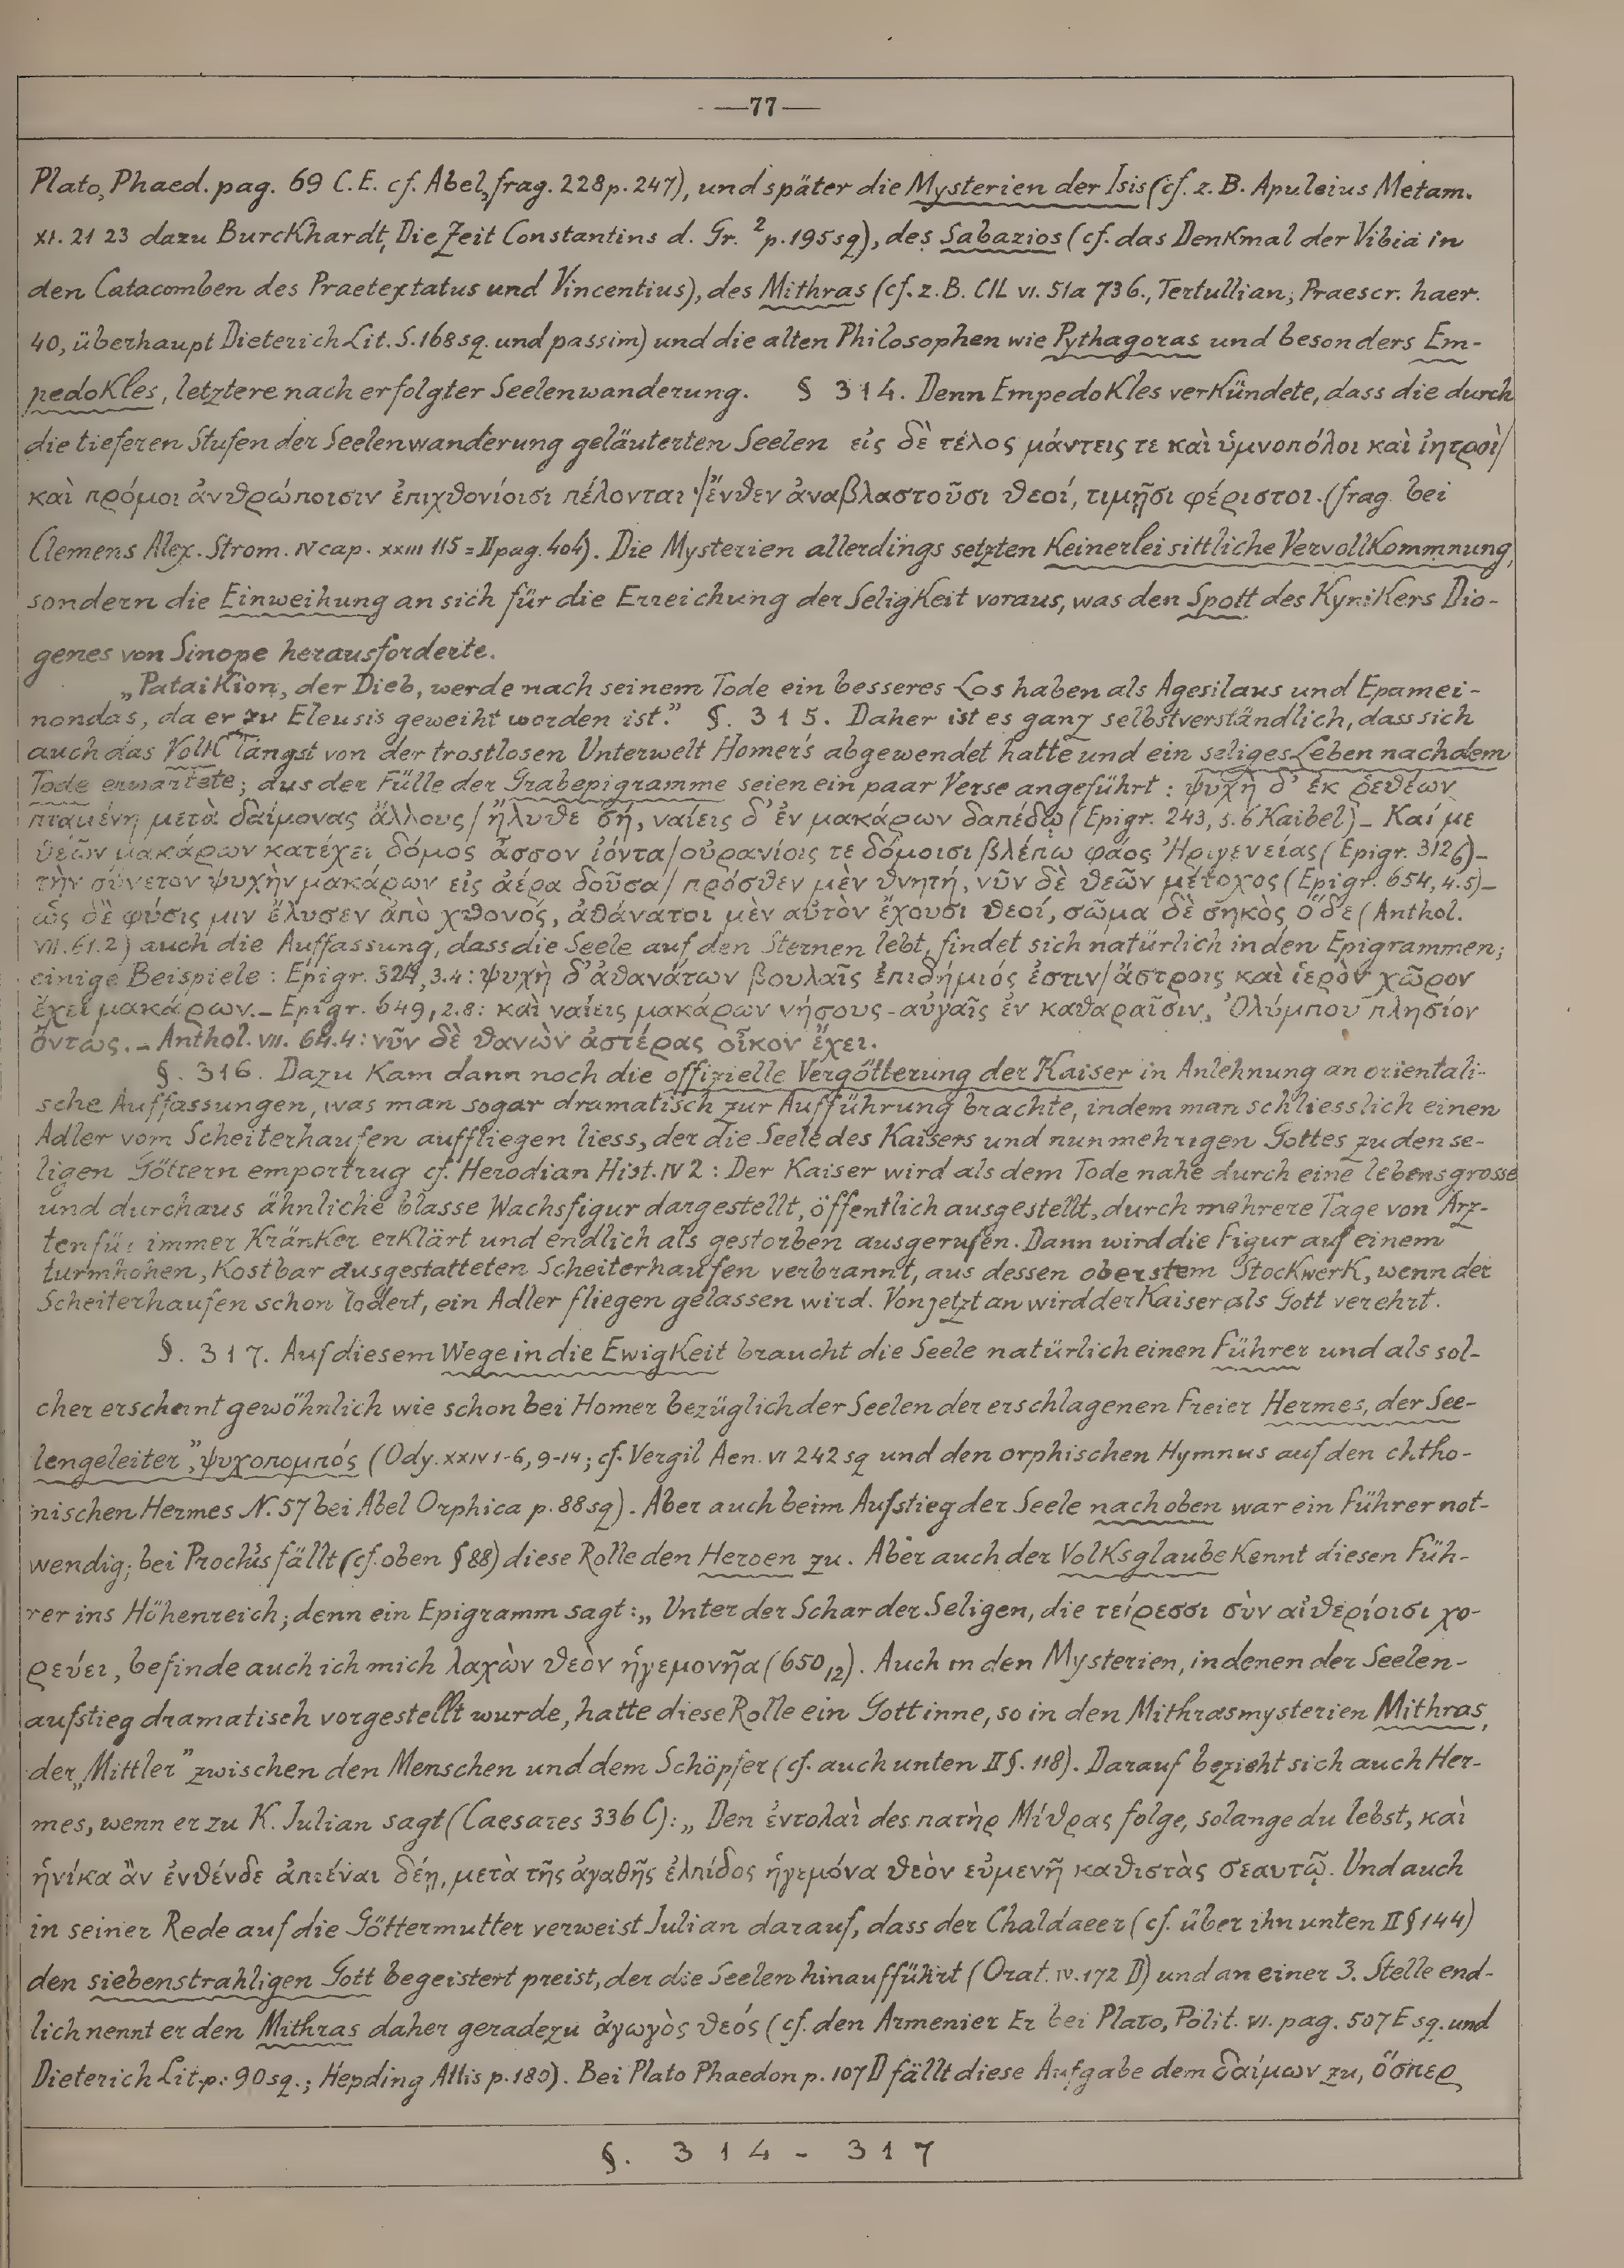 —77—
Plato, Phaed. pag. 69 C.E. cf. Abel, frag. 228 p. 247), und später die Mysterien der Isis (cf. z. B. Apuleius Metam.
XI. 21 23 dazu Burckhardt, Die Zeit Constantins d. Gr. ² p. 195 sq), des Sabazios (cf. das Denkmal der Vibia in
den Catacomben des Praetextatus und Vincentius), des Mithras (cf. z. B. CIL VI. 51a 736., Tertullian, Praescr. haer.
40, überhaupt Dieterich Lit. S. 168 sq. und passim) und die alten Philosophen wie Pythagoras und besonders Em-
pedokles, letztere nach erfolgter Seelenwanderung. § 314. Denn Empedokles verkündete, dass die durch
die tieferen Stufen der Seelenwanderung geläuterten Seelen εἰς δὲ τέλος μάντεις τε καὶ ὑμνοπόλοι καὶ ἰητροὶ/
καὶ πρόμοι ἀνθρώποισιν ἐπιχθονίοισι πέλονται·/ἔνθεν ἀναβλαστοῦσι θεοί, τιμῇσι φέριστοι. (frag. bei
Clemens Alex. Strom. IV cap. XXIII 115 = II pag. 404). Die Mysterien allerdings setzten keinerlei sittliche Vervollkommnung,
sondern die Einweihung an sich für die Erreichung der Seligkeit voraus, was den Spott des Kynikers Dio-
genes von Sinope herausforderte.
„Pataikion, der Dieb, werde nach seinem Tode ein besseres Los haben als Agesilaus und Epamei-
nondas, da er zu Eleusis geweiht worden ist.” §. 315. Daher ist es ganz selbstverständlich, dass sich
auch das Volk längst von der trostlosen Unterwelt Homer's abgewendet hatte und ein seliges Leben nach dem
Tode erwartete; aus der Fülle der Grabepigramme seien ein paar Verse angeführt: ψυχὴ δ' ἐκ ῥεθέων
πταμένη μετὰ δαίμονας ἄλλους/ἤλυθε σή, ναίεις δ' ἐν μακάρων δαπέδῳ (Epigr. 243, 5.6 Kaibel) – Καί με
θεῶν μακάρων κατέχει δόμος ἆσσον ἰόντα/οὐρανίοις τε δόμοισι βλέπω φάος Ἠριγενείας (Epigr. 312 6) –
τὴν σύνετον ψυχὴν μακάρων εἰς ἀέρα δοῦσα/ πρόσθεν μὲν θνητή, νῦν δὲ θεῶν μέτοχος (Epigr. 654, 4.5) –
ὣς δὲ φύσις μιν ἔλυσεν ἀπὸ χθονός, ἀθάνατοι μὲν αὐτὸν ἔχουσι θεοί, σῶμα δὲ σηκὸς ὅδε (Anthol.
VII. 61. 2) auch die Auffassung, dass die Seele auf den Sternen lebt, findet sich natürlich in den Epigrammen;
einige Beispiele: Epigr. 324, 3.4: ψυχὴ δ' ἀθανάτων βουλαῖς ἐπιδήμιός ἐστιν/ἄστροις καὶ ἱερὸν χῶρον
ἔχει μακάρων. – Epigr. 649, 2.8: καὶ ναίεις μακάρων νήσους – αὐγαῖς ἐν καθαραῖσιν, Ὀλύμπου πλησίον
ὄντως. – Anthol. VII. 64.4: νῦν δὲ θανὼν ἀστέρας οἶκον ἔχει.
§. 316. Dazu kam dann noch die offizielle Vergötterung der Kaiser in Anlehnung an orientali-
sche Auffassungen, was man sogar dramatisch zur Aufführung brachte, indem man schliesslich einen
Adler vom Scheiterhaufen auffliegen liess, der die Seele des Kaisers und nunmehrigen Gottes zu den se-
ligen Göttern emportrug cf. Herodian Hist. IV 2: Der Kaiser wird als dem Tode nahe durch eine lebensgrosse
und durchaus ähnliche blasse Wachsfigur dargestellt, öffentlich ausgestellt, durch mehrere Tage von Ärz-
ten für immer kränker erklärt und endlich als gestorben ausgerufen. Dann wird die Figur auf einem
turmhohen, kostbar ausgestatteten Scheiterhaufen verbrannt, aus dessen oberstem Stockwerk, wenn der
Scheiterhaufen schon lodert, ein Adler fliegen gelassen wird. Von jetzt an wird der Kaiser als Gott verehrt.
§. 317. Auf diesem Wege in die Ewigkeit braucht die Seele natürlich einen Führer und als sol-
cher erscheint gewöhnlich wie schon bei Homer bezüglich der Seelen der erschlagenen Freier Hermes, der See-
lengeleiter”, ψυχοπομπός (Ody. XXIV 1-6, 9-14; cf. Vergil Aen. VI 242 sq und den orphischen Hymnus auf den chtho-
nischen Hermes N. 57 bei Abel Orphica p. 88 sq). Aber auch beim Aufstieg der Seele nach oben war ein Führer not-
wendig; bei Proclus fällt (cf. oben § 88) diese Rolle den Heroen zu. Aber auch der Volksglaube kennt diesen Füh-
rer ins Höhenreich; denn ein Epigramm sagt: „Unter der Schar der Seligen, die τείρεσσι σὺν αἰθερίοισι χο-
ρεύει, befinde auch ich mich λαχὼν θεὸν ἡγεμονῆα (650,12). Auch in den Mysterien, in denen der Seelen-
aufstieg dramatisch vorgestellt wurde, hatte diese Rolle ein Gott inne, so in den Mithrasmysterien Mithras,
der „Mittler” zwischen den Menschen und dem Schöpfer (cf. auch unten II §. 118). Darauf bezieht sich auch Her-
mes, wenn er zu K. Julian sagt (Caesares 336 C): „Den ἐντολαὶ des πατὴρ Μίθρας folge, solange du lebst, καὶ
ἡνίκα ἂν ἐνθένδε ἀπιέναι δέῃ, μετὰ τῆς ἀγαθῆς ἐλπίδος ἡγεμόνα θεὸν εὐμενῆ καθιστὰς σεαυτῷ. Und auch
in seiner Rede auf die Göttermutter verweist Julian darauf, dass der Chaldaeer (cf. über ihn unten II § 144)
den siebenstrahligen Gott begeistert preist, der die Seelen hinaufführt (Orat. IV. 172 D) und an einer 3. Stelle end-
lich nennt er den Mithras daher geradezu ἀγωγὸς θεός (cf. den Armenier Er bei Plato, Polit. VI. pag. 507 E sq. und
Dieterich Lit. p. 90 sq.; Hepding Attis p. 180). Bei Plato Phaedon p. 107 D fällt diese Aufgabe dem δαίμων zu, ὅσπερ
§. 314 - 317